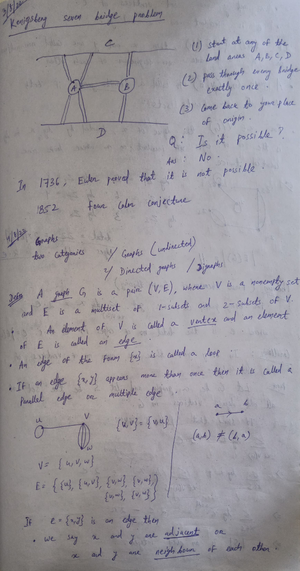 Konigsberg seven bridge problem
C
A
B
D
(1) Start at any of the land areas A, B, C, D
(2) pass through every bridge exactly once.
(3) Come back to your place of origin.
Q: Is it possible?
Ans: No.
In 1736, Euler proved that it is not possible.
1852 Four Color conjecture
Graphs
two categories
1/ Graphs (undirected)
2/ Directed graphs / Digraphs
Defn A graph G is a pair (V, E), where V is a nonempty set
and E is a multiset of 1-subsets and 2-subsets of V.
• An element of V is called a vertex and an element
of E is called an edge.
• An edge of the form {u} is called a loop.
• If an edge {x,y} appears more than once then it is called a
parallel edge or multiple edge.
u
v
w
{u,v} = {v,u}
a
b
(a,b) ≠ (b,a)
V = {u, v, w}
E = { {u}, {u,v}, {v,w}, {v,w},
{v,w} }
If e = {x,y} is an edge then
• we say x and y are adjacent or
x and y are neighbours of each other.